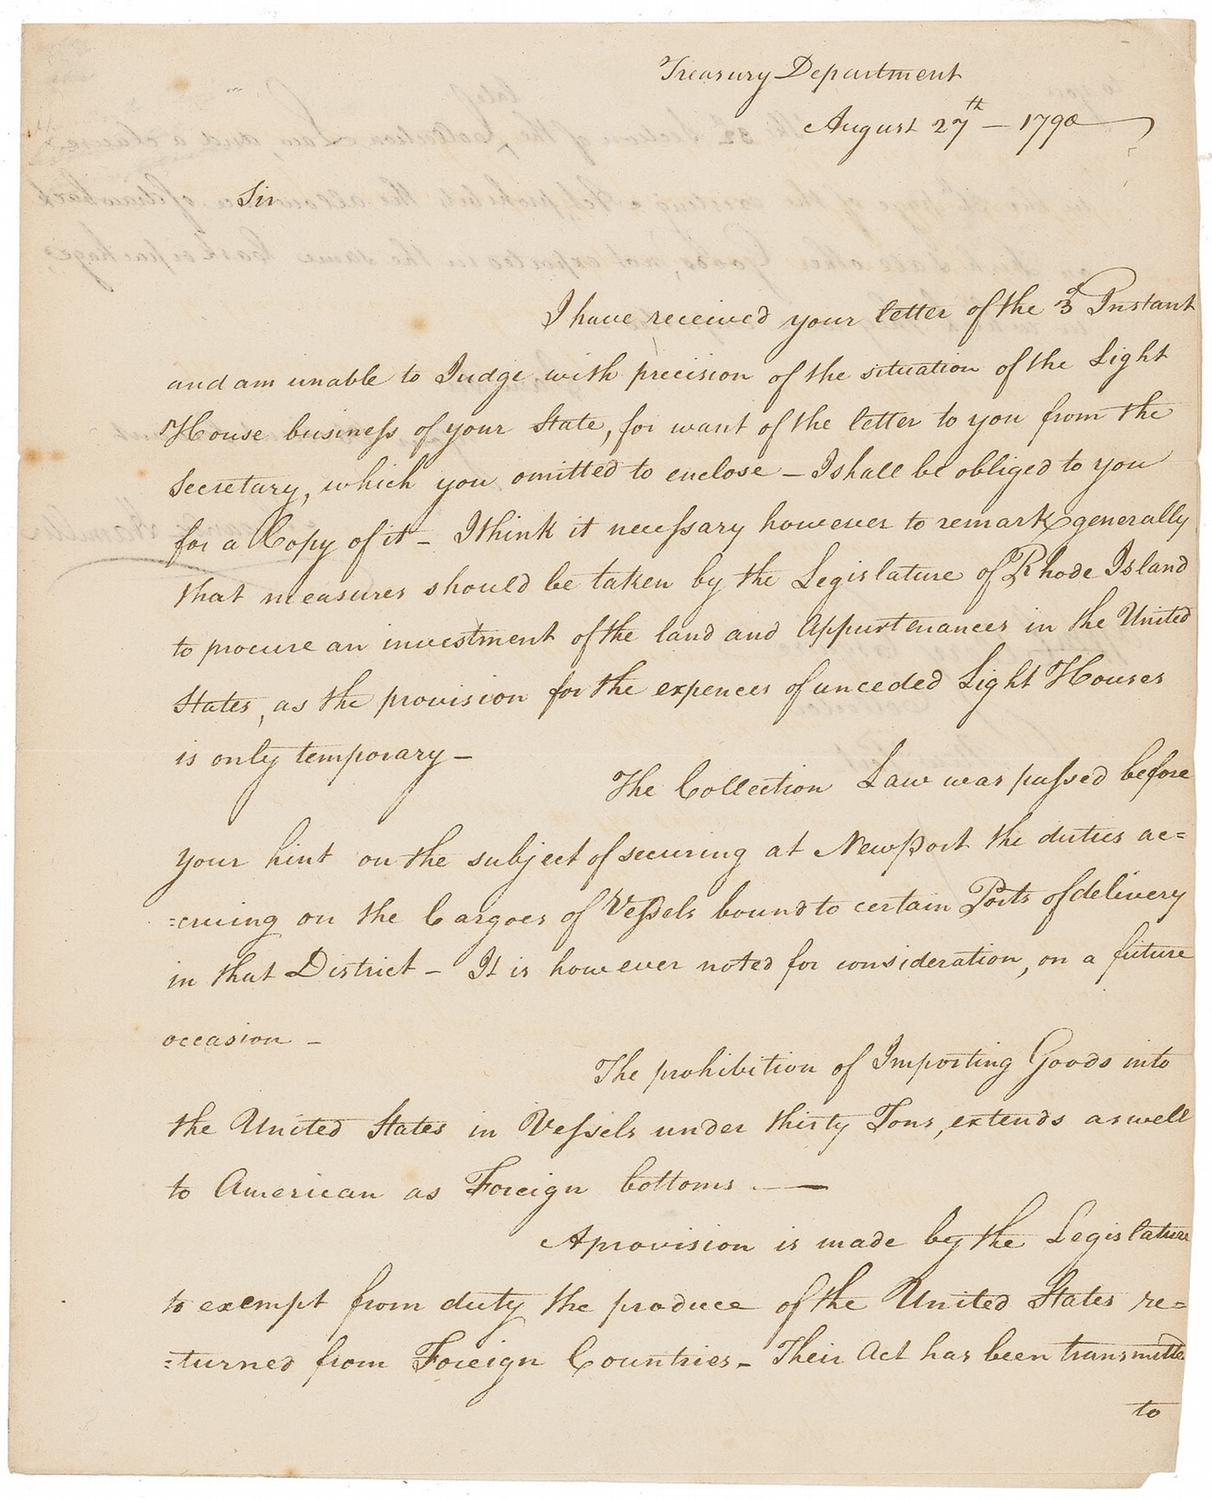 Treasury Department
August 27th — 1790
Sir
I have received your letter of the 3d Instant
and am unable to Judge with precision of the situation of the Light
House business of your State, for want of the letter to you from the
Secretary, which you omitted to enclose — I shall be obliged to you
for a Copy of it — I think it necessary however to remark generally
that measures should be taken by the Legislature of Rhode Island
to procure an investment of the land and Appurtenances in the United
States, as the provision for the expences of unceded Light Houses
is only temporary —
The Collection Law was passed before
your hint on the subject of securing at NewPort the duties ac=
=cruing on the Cargoes of Vessels bound to certain Ports of delivery
in that District — It is however noted for consideration, on a future
occasion —
The prohibition of Importing Goods into
the United States in Vessels under thirty Tons, extends as well
to American as Foreign bottoms. —
A provision is made by the Legislature
to exempt from duty the produce of the United States re=
=turned from Foreign Countries — Their Act has been transmitted
to